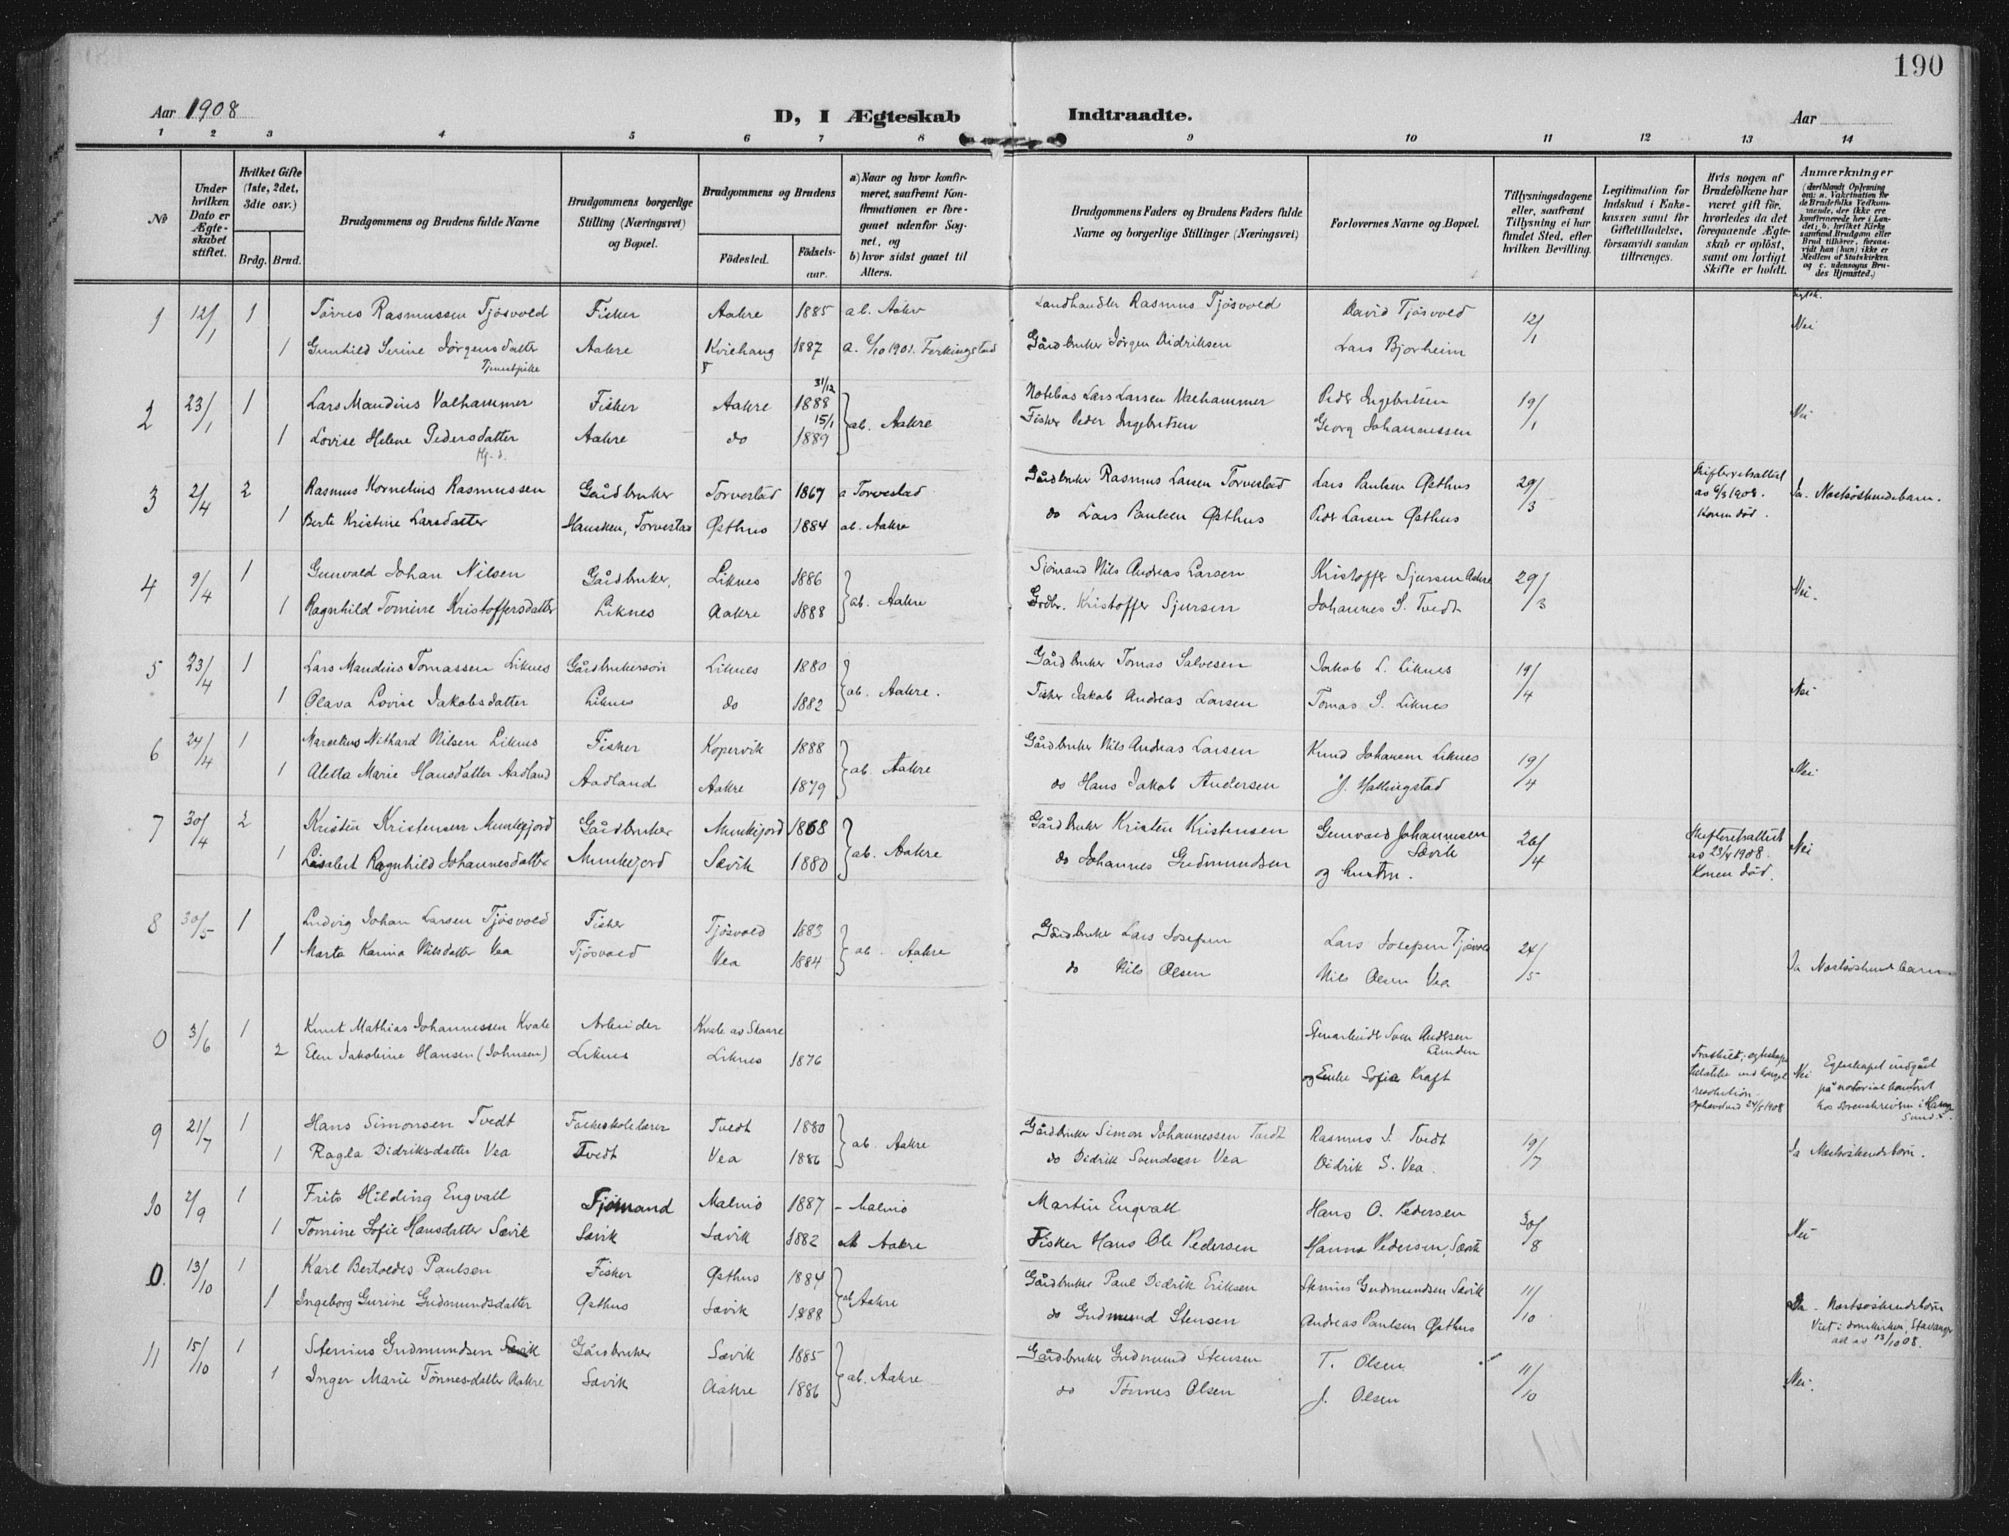 190
Aar 1908
D, I Ægteskab Indtraadte.
Aar
1 2 3 4 5 6 7 8 9 10 11 12 13 14
No
Under hvilken Dato er Ægteskabet stiftet.
Hvilket Gifte (1ste, 2det, 3die osv.)
Brdg. Brud.
Brudgommens og Brudens fulde Navne
Brudgommens borgerlige Stilling (Næringsvei) og Bopæl.
Brudgommens og Brudens
Fødested. Fødselsaar.
a) Naar og hvor konfirmeret, saafremt Konfirmationen er foregaaet udenfor Sognet, og
b) hvor sidst gaaet til Alters.
Brudgommens Faders og Brudens Faders fulde Navne og borgerlige Stillinger (Næringsvei)
Forlovernes Navne og Bopæl.
Tillysningsdagene eller, saafremt Tillysning ei har fundet Sted, efter hvilken Bevilling.
Legitimation for Indskud i Enkekassen samt for Giftetilladelse, forsaavidt saadan tiltrænges.
Hvis nogen af Brudefolkene har været gift før, hvorledes da det foregaaende Ægteskab er opløst, samt om lovligt Skifte er holdt.
Anmærkninger
(deriblandt Oplysning om: a. Vakcination for de Brudefolks Vedkommende, der ikke ere konfirmerede her i Landet; b. hvilket Kirkesamfund Brudgom eller Brud tilhører, forsaavidt han (hun) ikke er Medlem af Statskirken og c. udensogns Brudes Hjemsted.)
1 12/1 1 Tørres Rasmussen Tjøsvold Fisker Aakre 1885 ab. Aakre Landhandler Rasmus Tjøsvold David Tjøsvold 12/1 Nei
1 Gunhild Serine Jørgensdatter Aakre 1887 a. 1901. Gårdbruker Jørgen Didriksen Lars Bjorheim
2 23/1 1 Lars Mandius Valhammer Fisker Aakre 31/12 1888 ab. Aakre Notebas Lars Larsen Peder Ingebritsen 19/1 Nei
1 Lovise Helene Pedersdatter Aakre do 15/1 1889 Fisker Peder Ingebritsen Georg Johannessen
3 2/4 2 Rasmus Kornelius Rasmussen Gårdbruker Torvestad 1867 a Torvestad Gårdbruker Rasmus Larsen Torvestad Lars Paulsen Østhus 29/3 Skifteretsattest av 6/3 1908. Konen død. Ja. Næstsøskendebarn.
1 Berte Kristine Larsdatter Hausken, Torvestad Østhus 1884 ab. Aakre do Lars Paulsen Østhus Peder Larsen Østhus
4 9/4 1 Gunvald Johan Nilsen Gårdbruker, Liknes 1886 ab. Aakre Sjømand Nils Andreas Larsen Kristoffer Sjursen Aakre 29/3 Nei.
1 Ragnhild Tomine Kristoffersdatter Liknes Aakre 1888 Grdbr. Kristoffer Sjursen Johannes S. Tvedt
5 23/4 1 Lars Mandius Tomassen Liknes Gårdbrukersøn Liknes 1880 ab. Aakre. Gårdbruker Tomas Salvesen Jakob L. Liknes 19/4 Nei
1 Olava Lovise Jakobsdatter Liknes do 1882 Fisker Jakob Andreas Larsen Tomas S. Liknes
6 24/4 1 Marcelius Nithard Nilsen Liknes Fisker Kopervik 1888 ab. Aakre Gårdbruker Nils Andreas Larsen Knud Johannes Liknes 19/4 Nei
1 Aletta Marie Hansdatter Aadland Aadland Aakre 1879 do Hans Jakob Andersen J. Hallingstad
7 30/4 2 Kristen Kristensen Munkejord Gårdbruker Munkejord 1868 ab. Aakre Gårdbruker Kristen Kristensen Gunvald Johannesen Sævik 26/4 Skifteretsattest av 23/4 1908. Konen død. Nei
1 Lisabet Ragnhild Johannesdatter Munkejord Sævik 1880 do Johannes Gudmundsen og hustru.
8 30/5 1 Ludvig Johan Larsen Tjøsvold Fisker Tjøsvold 1883 ab. Aakre Gårdbruker Lars Josefsen Lars Josefsen Tjøsvold 24/5 Ja Næstsøskendebarn
1 Marta Karina Nilsdatter Vea Tjøsvold Vea 1884 do Nils Olsen Nils Olsen Vea
0 3/6 1 Knut Mathias Johannessen Kvale Arbeider Kvale av Skaare Stenarbeider Sven Andersen
2 Elen Jakobine Hansen (Johnsen) Liknes Liknes 1876 og Enke Sofie Kraft 24/5 1908 Nei Egteskapet indgået på notarialkontoret hos Sorenskriveren i Haugesund.
9 21/7 1 Hans Simonsen Tvedt Folkeskolelærer Tvedt 1880 ab. Aakre Gårdbruker Simon Johannessen Tvedt Rasmus J. Tvedt 19/7 Ja Næstsøskendebørn.
1 Ragla Didriksdatter Vea Tvedt Vea 1886 do Didrik Svendsen Vea Didrik S. Vea.
10 2/9 1 Frits Hilding Engvall Sjømand Malmö 1887 - Malmö Martin Engvall Hans O. Pedersen 30/8 Nei
1 Tomine Sofie Hansdatter Sævik Sævik Sævik 1882 ab Aakre Fisker Hans Ole Pedersen Hanna Pedersen, Sævik
0. 13/10 1 Karl Bertoldes Paulsen Fisker Østhus 1884 ab Aakre Gårdbruker Paul Didrik Eriksen Stenius Gudmundsen Sævik 11/10 Ja. Næstsøskendebørn Viet i domkirken, Stavanger 13/10 08.
1 Ingeborg Gurine Gudmundsdatter Østhus Sævik 1888 do Gudmund Stensen Andreas Paulsen Østhus
11 15/10 1 Stenius Gudmundsen Sævik Gårdbruker Sævik 1885 ab. Aakre Gårdbruker Gudmund Stensen T. Olsen 11/10 Nei.
1 Inger Marie Tønnesdatter Aakre Sævik Aakre 1886 do Tønnes Olsen J. Olsen